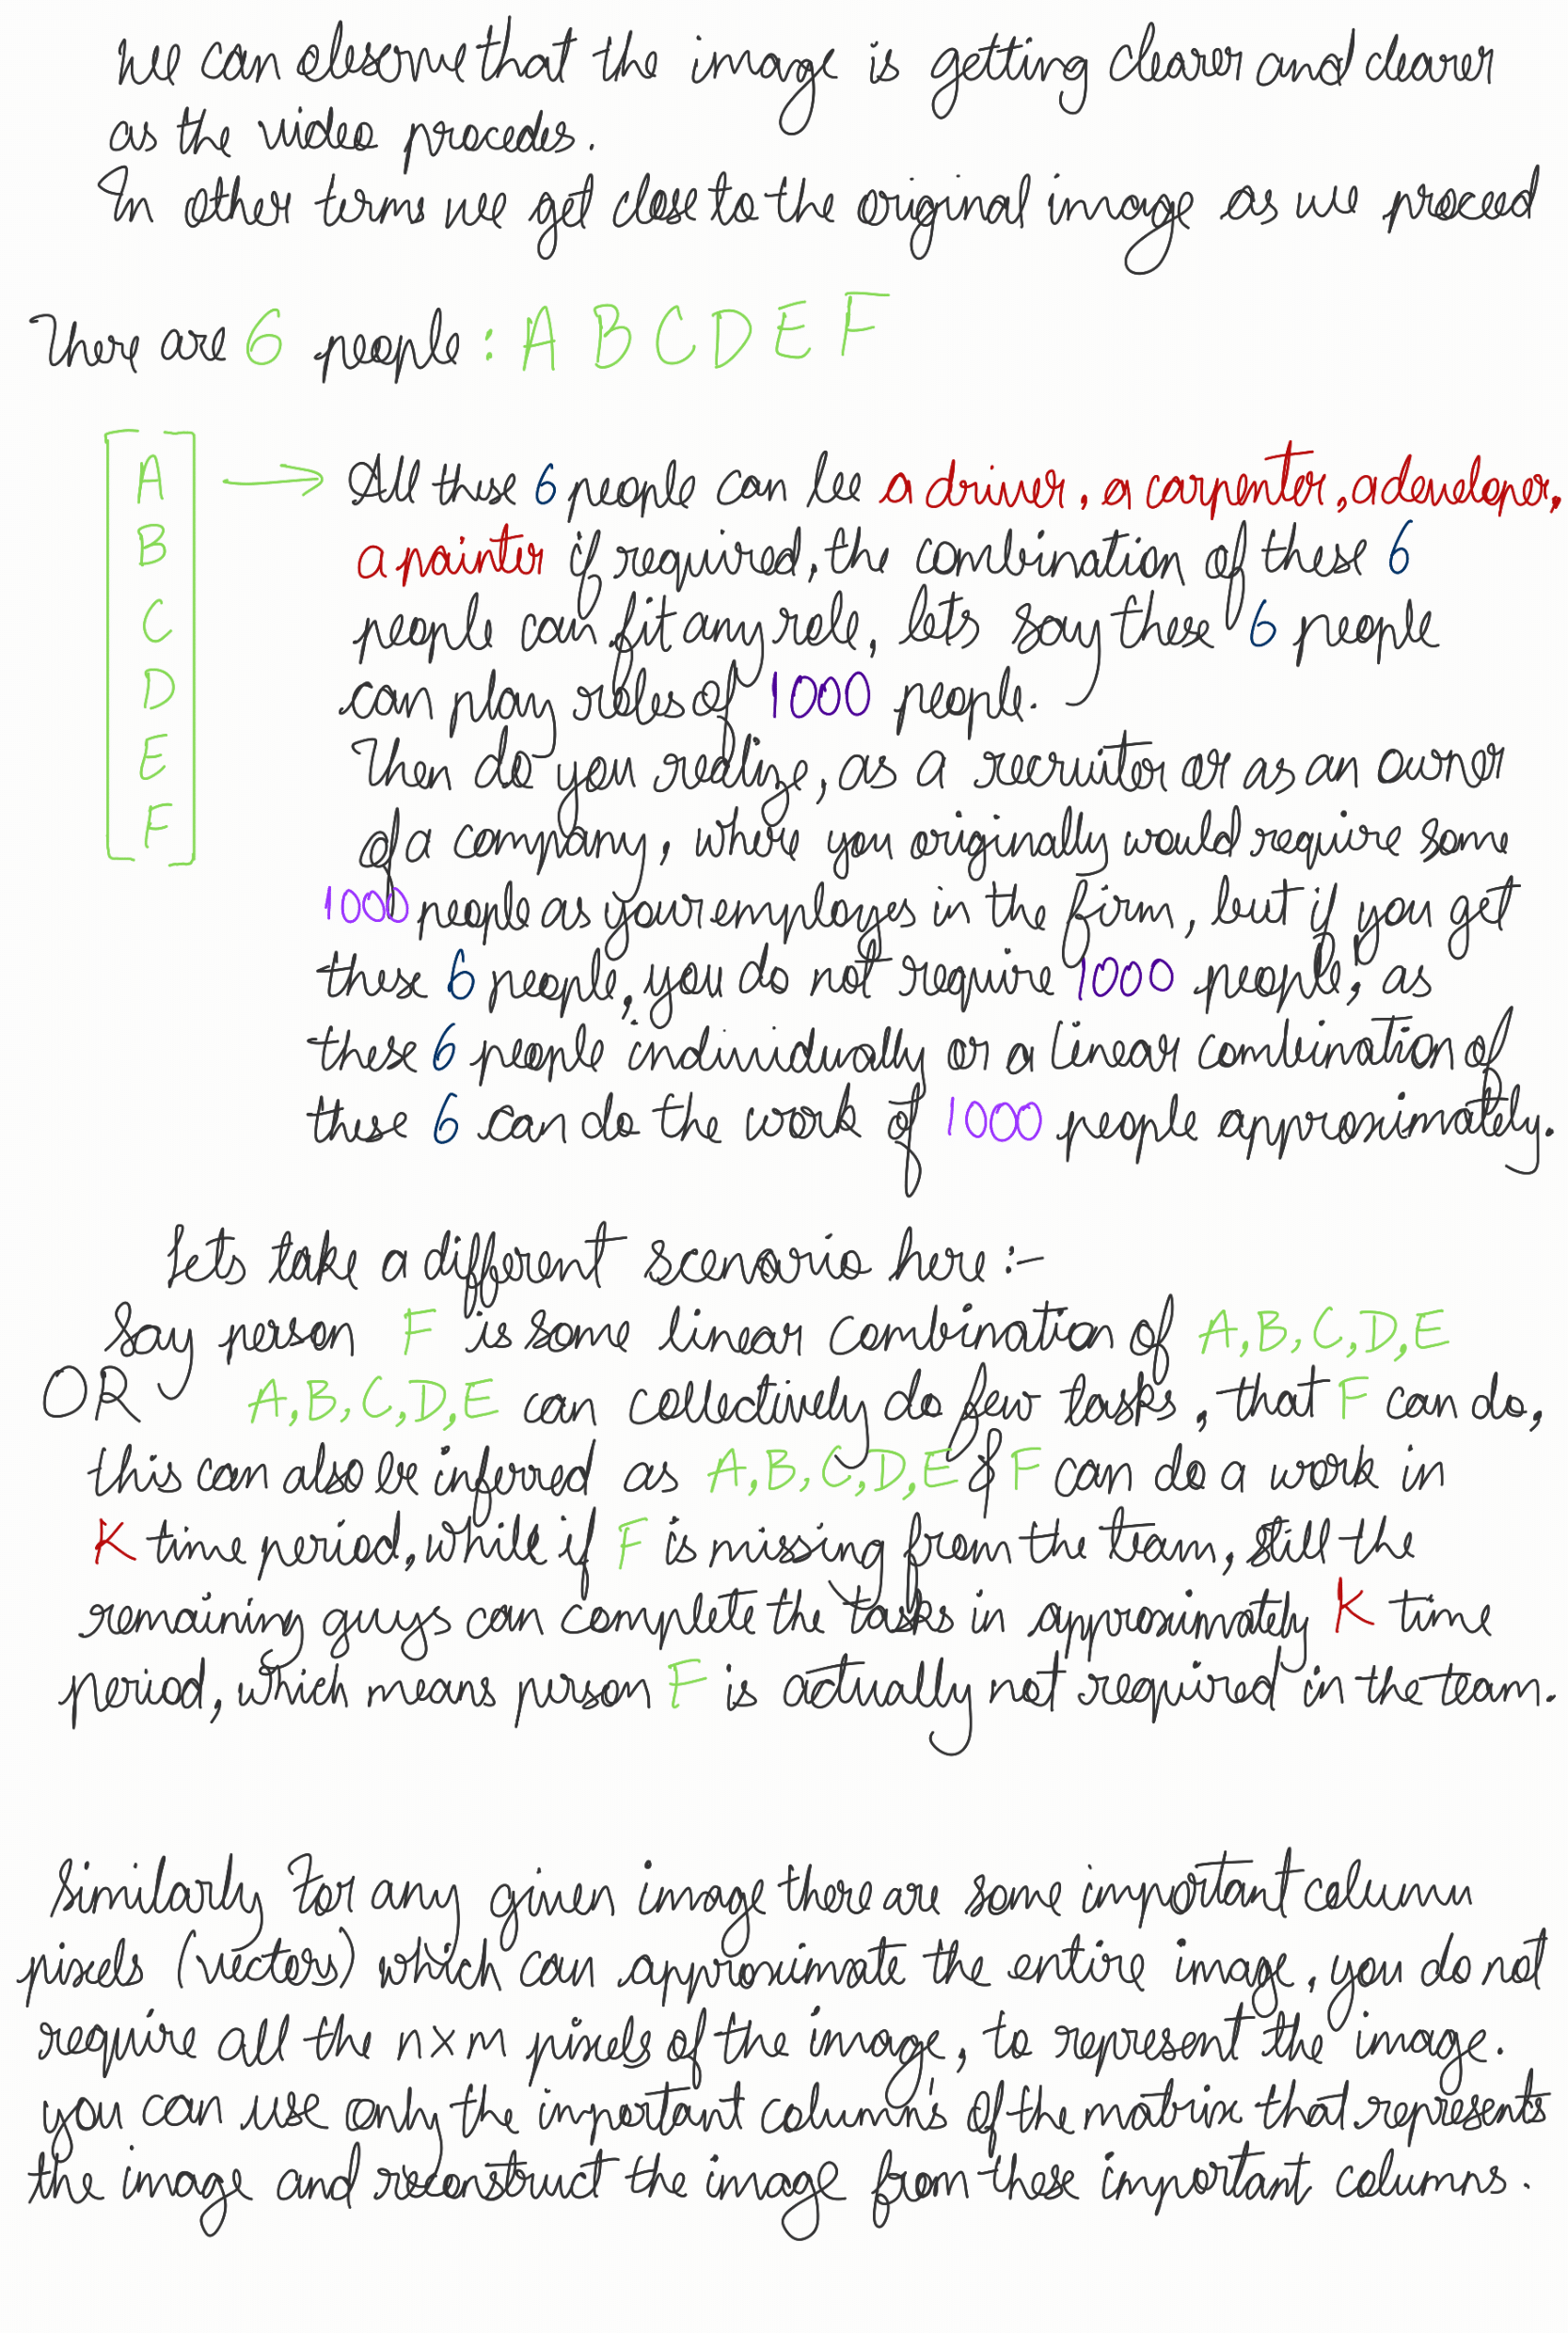 We can observe that the image is getting clearer and clearer
as the video procedes.
In other terms we get close to the original image as we proceed
There are 6 people : A B C D E F
A
B
C
D
E
F
All these 6 people can be a driver, a carpenter, a developer,
a painter if required, the combination of these 6
people can fit any role, lets say these 6 people
can play roles of 1000 people.
Then do you realize, as a recruiter or as an owner
of a company, where you originally would require some
1000 people as your employes in the firm, but if you get
these 6 people, you do not require 1000 people, as
these 6 people individually or a linear combination of
these 6 can do the work of 1000 people approximately.
Lets take a different scenario here :-
Say person F is some linear combination of A, B, C, D, E
OR A, B, C, D, E can collectively do few tasks, that F can do,
this can also be inferred as A, B, C, D, E & F can do a work in
K time period, while if F is missing from the team, still the
remaining guys can complete the tasks in approximately K time
period, which means person F is actually not required in the team.
Similarly For any given image there are some important column
pixels (vectors) which can approximate the entire image, you do not
require all the n x m pixels of the image, to represent the image.
you can use only the important column's of the matrix that represents
the image and reconstruct the image from these important columns.